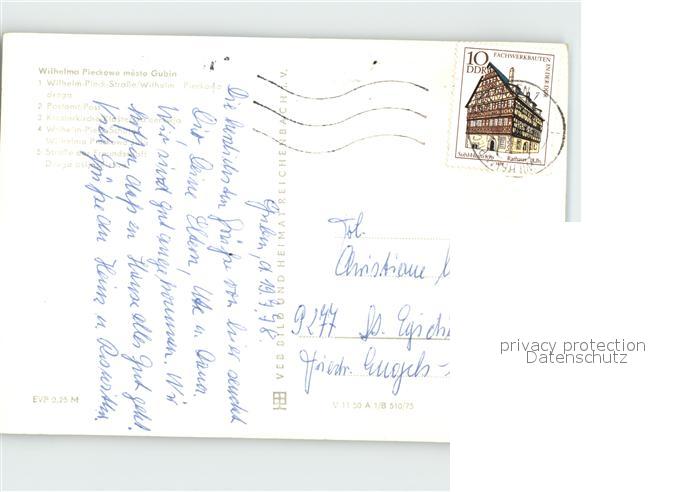 Wilhelma Pieckowe město Gubin
1 Wilhelm-Pieck-Straße/Wilhelm Pieckowa
droga
2 Postamt/Post
3
4 Wilhelm-Pieck-
Wilhelma Pieckowa
5 Straße der Freundschaft
Droga
EVP 0,25 M
Guben, d. 19.7.78.
Die herzlichsten Grüße von hier sendet
Dir Deine Eltern, Ute u. Dana.
Wir sind gut angekommen. Wir
hoffen daß zu Hause alles gut geht.
Viele Grüße an Heinz u.
VEB BILD UND HEIMAT REICHENBACH i. V.
V 11 50 A 1/B 510/75
10
DDR
FACHWERKBAUTEN
IN DER DDR
Rathaus
Frl.
Christiane
9277
Friedr. Engels-
privacy protection
Datenschutz